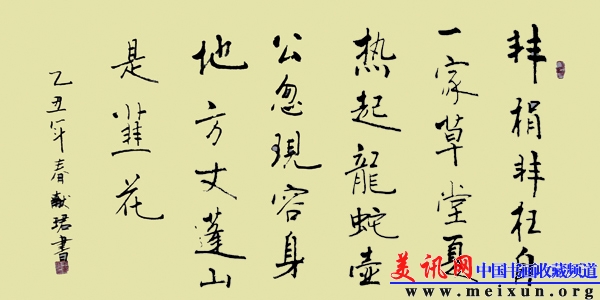 自
一家草堂夏
热起龍蛇壺
公忽現容身
地方丈蓬山
是韭花
乙丑年春献珺書
美讯网
中国书画收藏频道
www.meixun.org